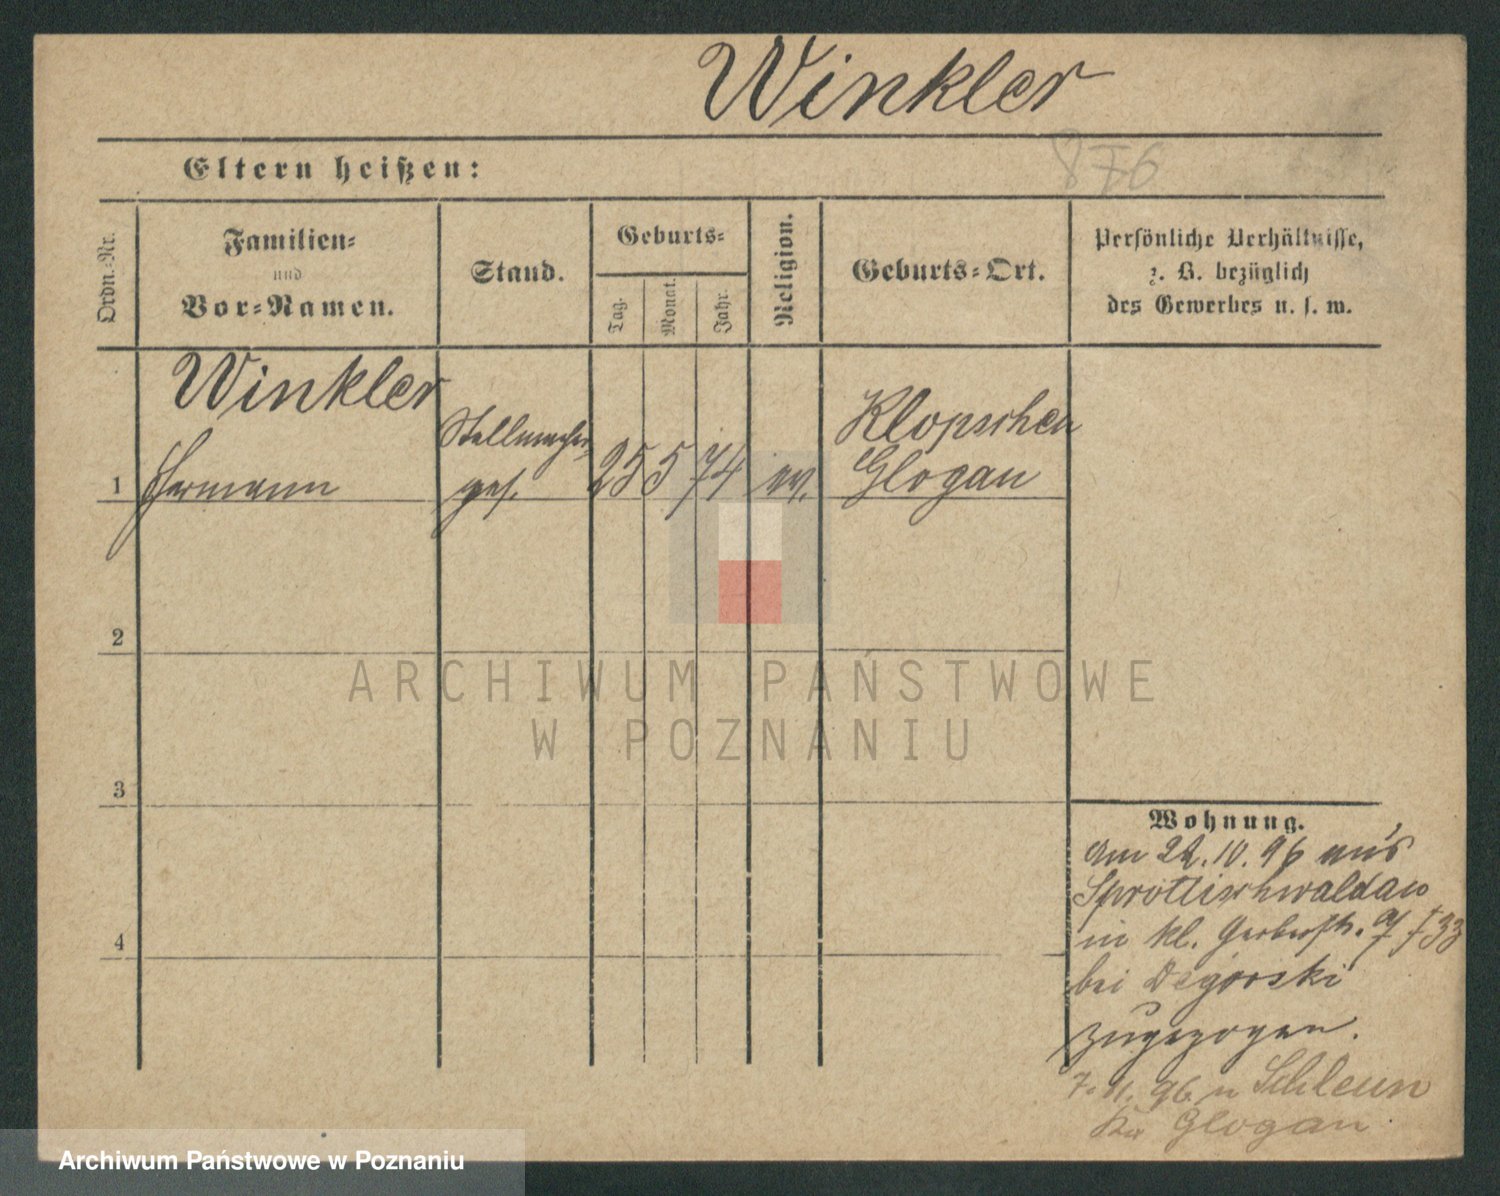 Winkler
876
Eltern heißen:
Ordn.-Nr.
Familien-
und
Vor-Namen.
Stand.
Geburts-
Tag.
Monat.
Jahr.
Religion.
Geburts-Ort.
Persönliche Verhältnisse,
z. B. bezüglich
des Gewerbes u. s. w.
Winkler
Hermann
Stellmacher
ges.
25 5 74
ev.
Klopschen
Glogau
1
2
3
4
Wohnung.
Am 22.10.96 aus
Sprottischwaldau
in kl. Gerberstr.
bei Degórski
zugezogen.
7.11.96 n Schleun
Kr Glogau
ARCHIWUM PAŃSTWOWE
W POZNANIU
Archiwum Państwowe w Poznaniu